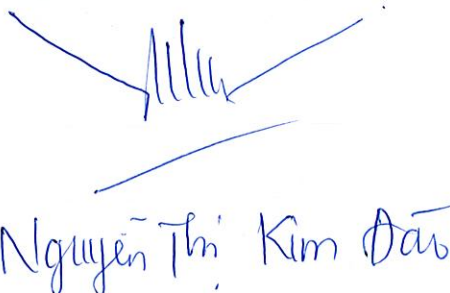 Nguyễn Thị Kim Đào